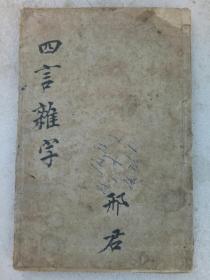 四言雜字
邢君